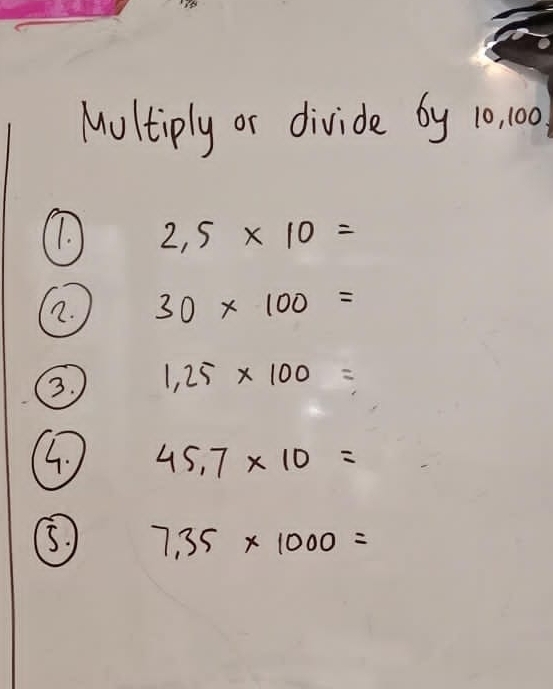 Multiply or divide by 10,100
1. 2,5 × 10 =
2. 30 × 100 =
3. 1,25 × 100 =
4. 45,7 × 10 =
5. 7,35 × 1000 =